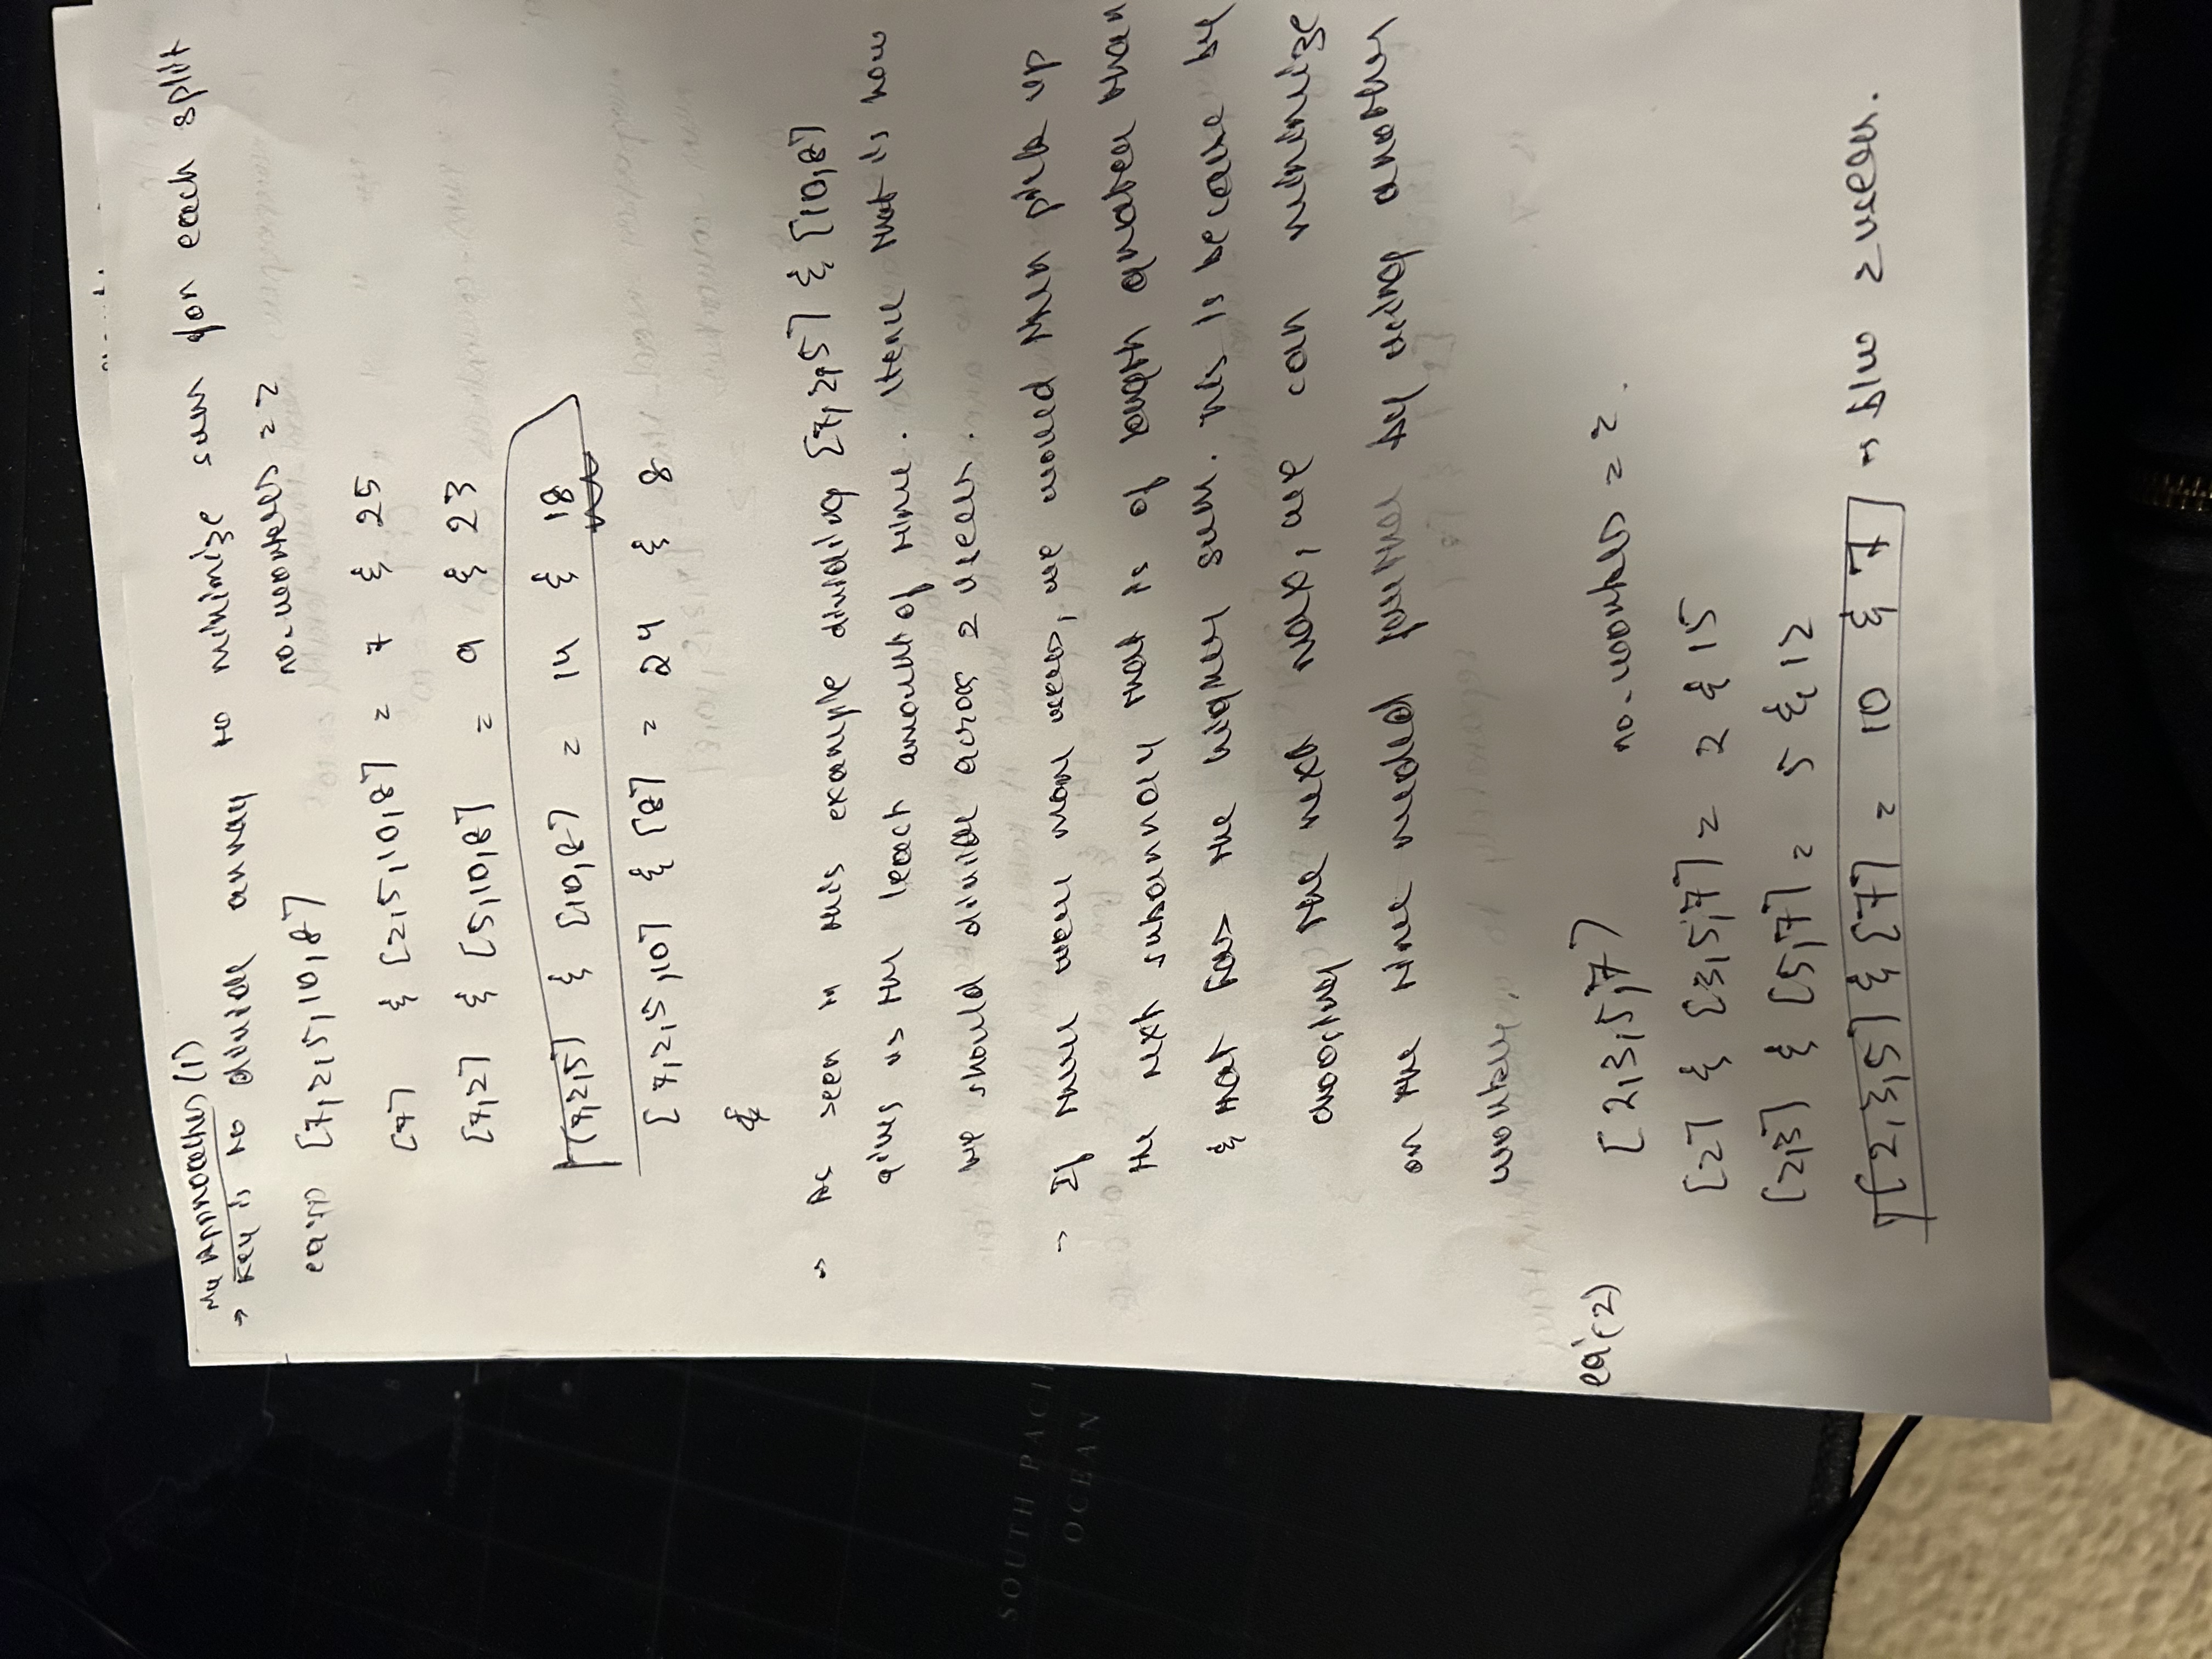 My Approaches (1)
→ Key is to divide array to minimize sum for each split
eg(1) [7,2,5,10,8] no. workers = 2
[7] & [2,5,10,8] = 7 & 25
[7,2] & [5,10,8] = 9 & 23
[7,2,5] & [10,8] = 14 & 18
[7,2,5,10] & [8] = 24 & 8
&
→ As seen in this example dividing [7,2,5] & [10,8]
gives us the least amount of time. Hence that is how
we should divide across 2 users.
→ If there were more users, we would then pick up
the next subarray that is of length greater than
& that has the higher sum. This is because by
choosing the next max, we can minimize
on the time needed further by using another
worker.
eg(2) [2,3,5,7] no. workers = 2.
[2] & [3,5,7] = 2 & 15
[2,3] & [5,7] = 5 & 12
[2,3,5] & [7] = 10 & 7 → b/w 2 users.
SOUTH PACI
OCEAN